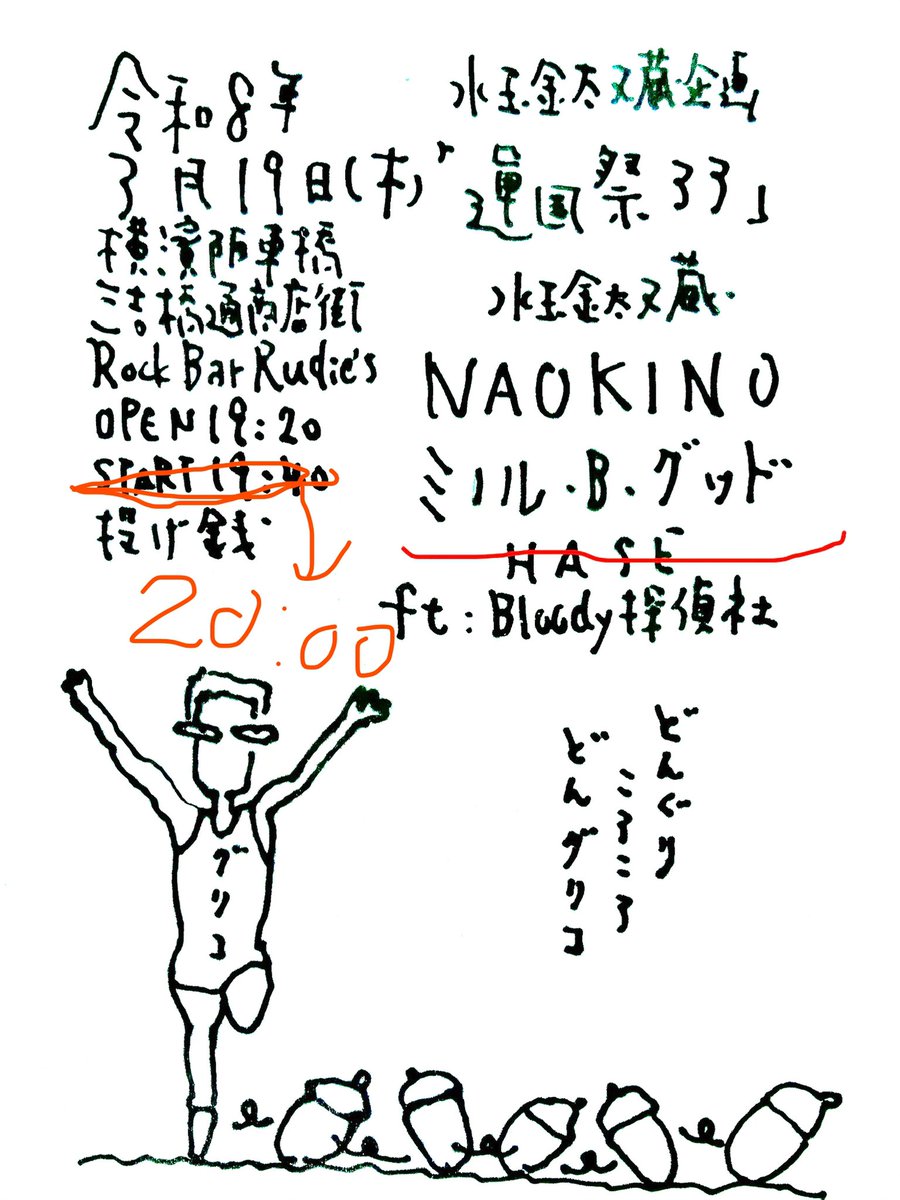 令和8年
3月19日(木)
横濱阪東橋
三吉橋通商店街
Rock Bar Rudie's
OPEN 19:20
START 19:40
投げ銭
20:00
水玉金太又蔵企画
「運国祭33」
水玉金太又蔵
NAOKINO
ミノル.B.グッド
HASE
ft:Bloody探偵社
どんぐり
ころころ
どんグリコ
グリコ